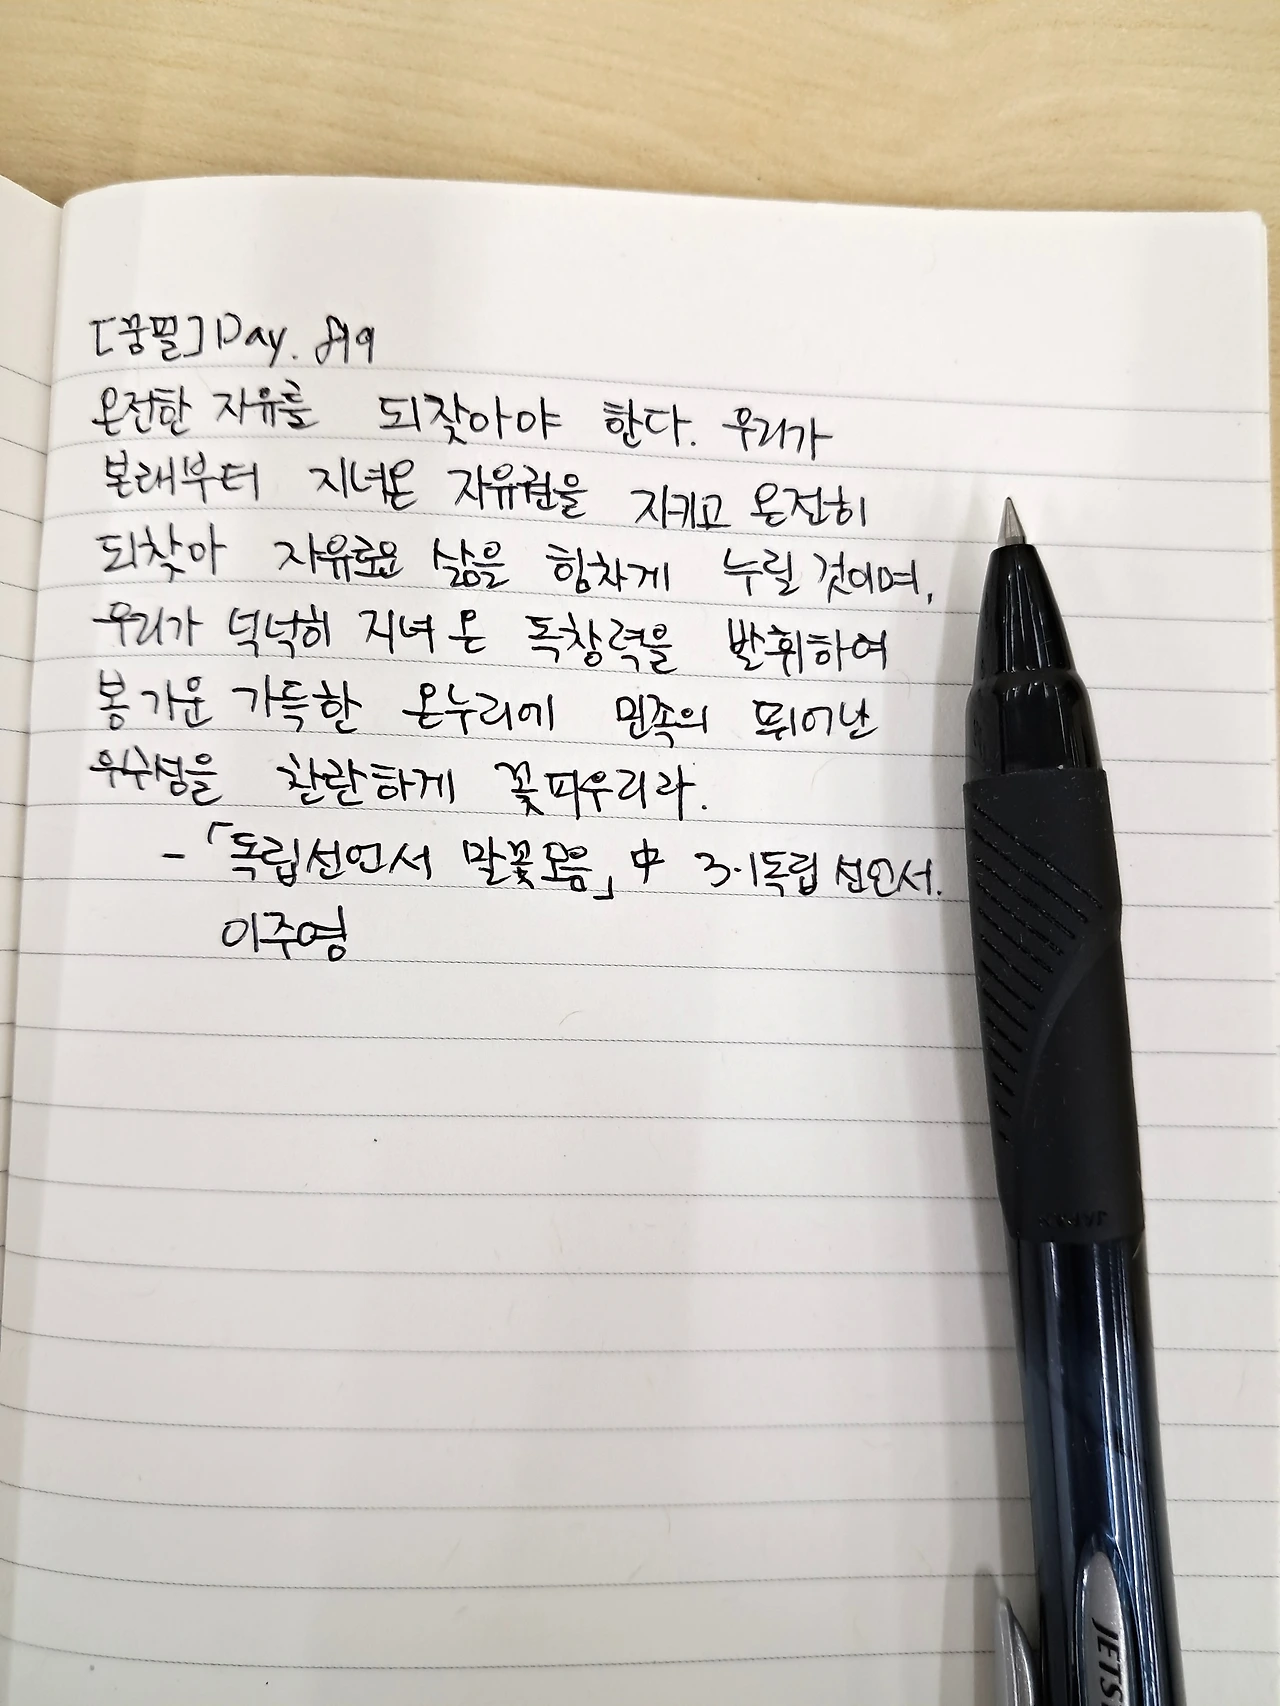 [꿈필] Day. 819
온전한 자유를 되찾아야 한다. 우리가
본래부터 지녀온 자유권을 지키고 온전히
되찾아 자유로운 삶을 힘차게 누릴 것이며,
우리가 넉넉히 지녀 온 독창력을 발휘하여
봄 기운 가득한 온누리에 민족의 뛰어난
우수성을 찬란하게 꽃피우리라.
-「독립선언서 말꽃모음」中 3·1독립선언서.
이주영
JAPAN
JETS